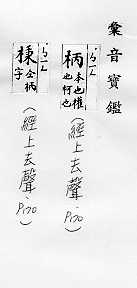 彙音寶鑑
ㄅㄧㄥˋ
柄 本也權也何也
(經上去聲 P170)
棅 仝柄字
(經上去聲 P170)